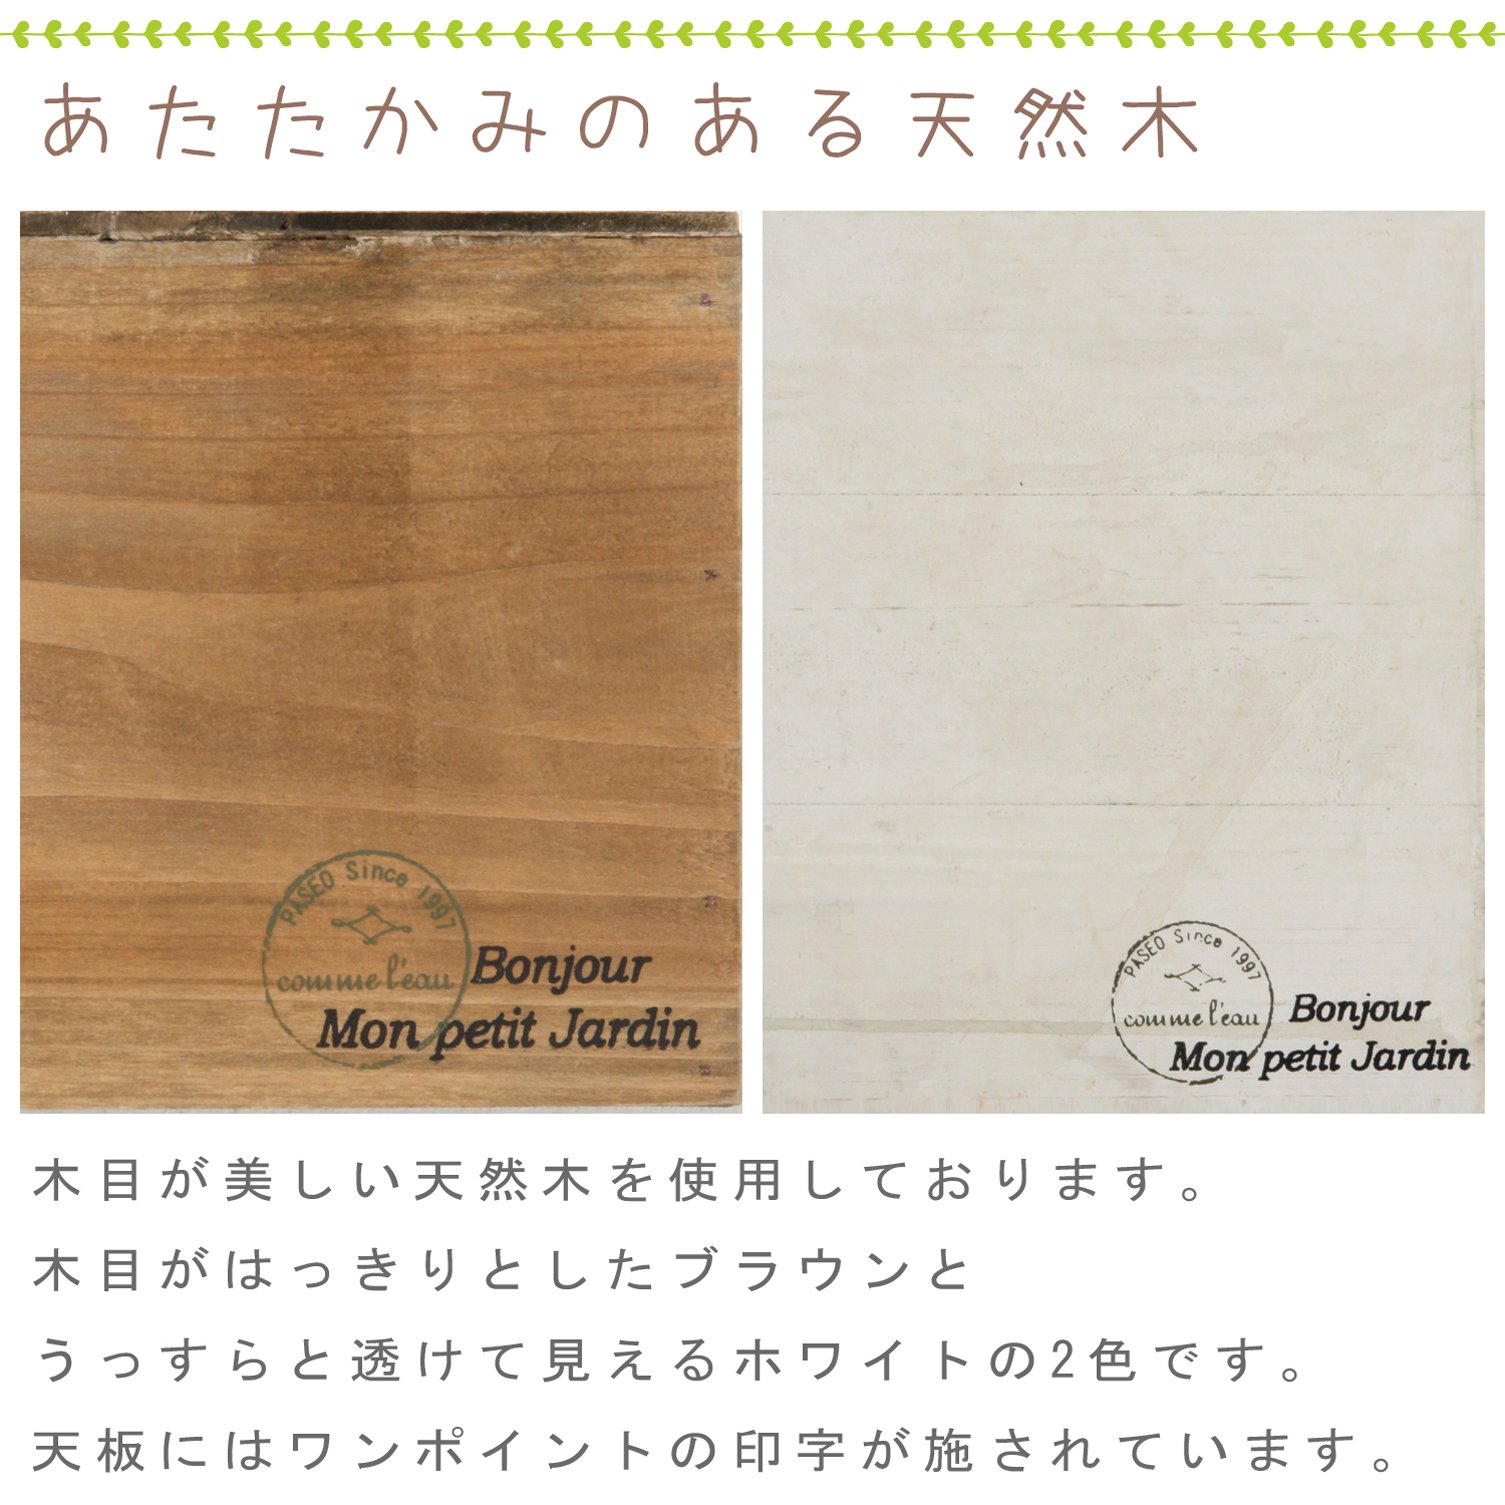 あたたかみのある天然木
PASEO Since 1997
comme l'eau
Bonjour
Mon petit Jardin
PASEO Since 1997
comme l'eau
Bonjour
Mon petit Jardin
木目が美しい天然木を使用しております。
木目がはっきりとしたブラウンと
うっすらと透けて見えるホワイトの2色です。
天板にはワンポイントの印字が施されています。